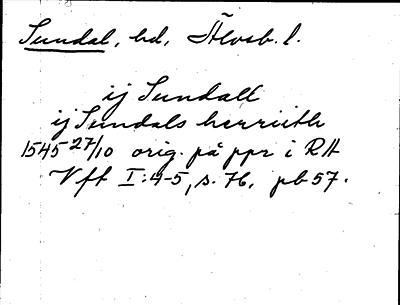 Sundal, hd, Älvsb. l.
ij Sundall
ij Sundals herriith
1545 27/10 orig. på ppr i RA
Vft I:4-5, s. 76. pb 57.